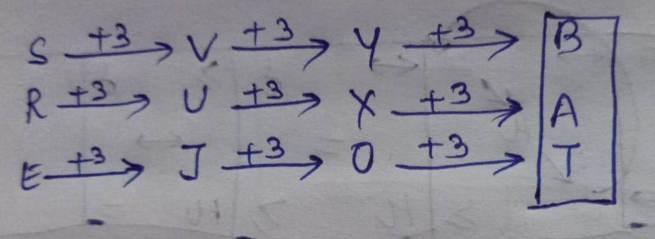 S +3 → V +3 → Y +3 → B
R +3 → U +3 → X +3 → A
E +3 → J +3 → O +3 → T